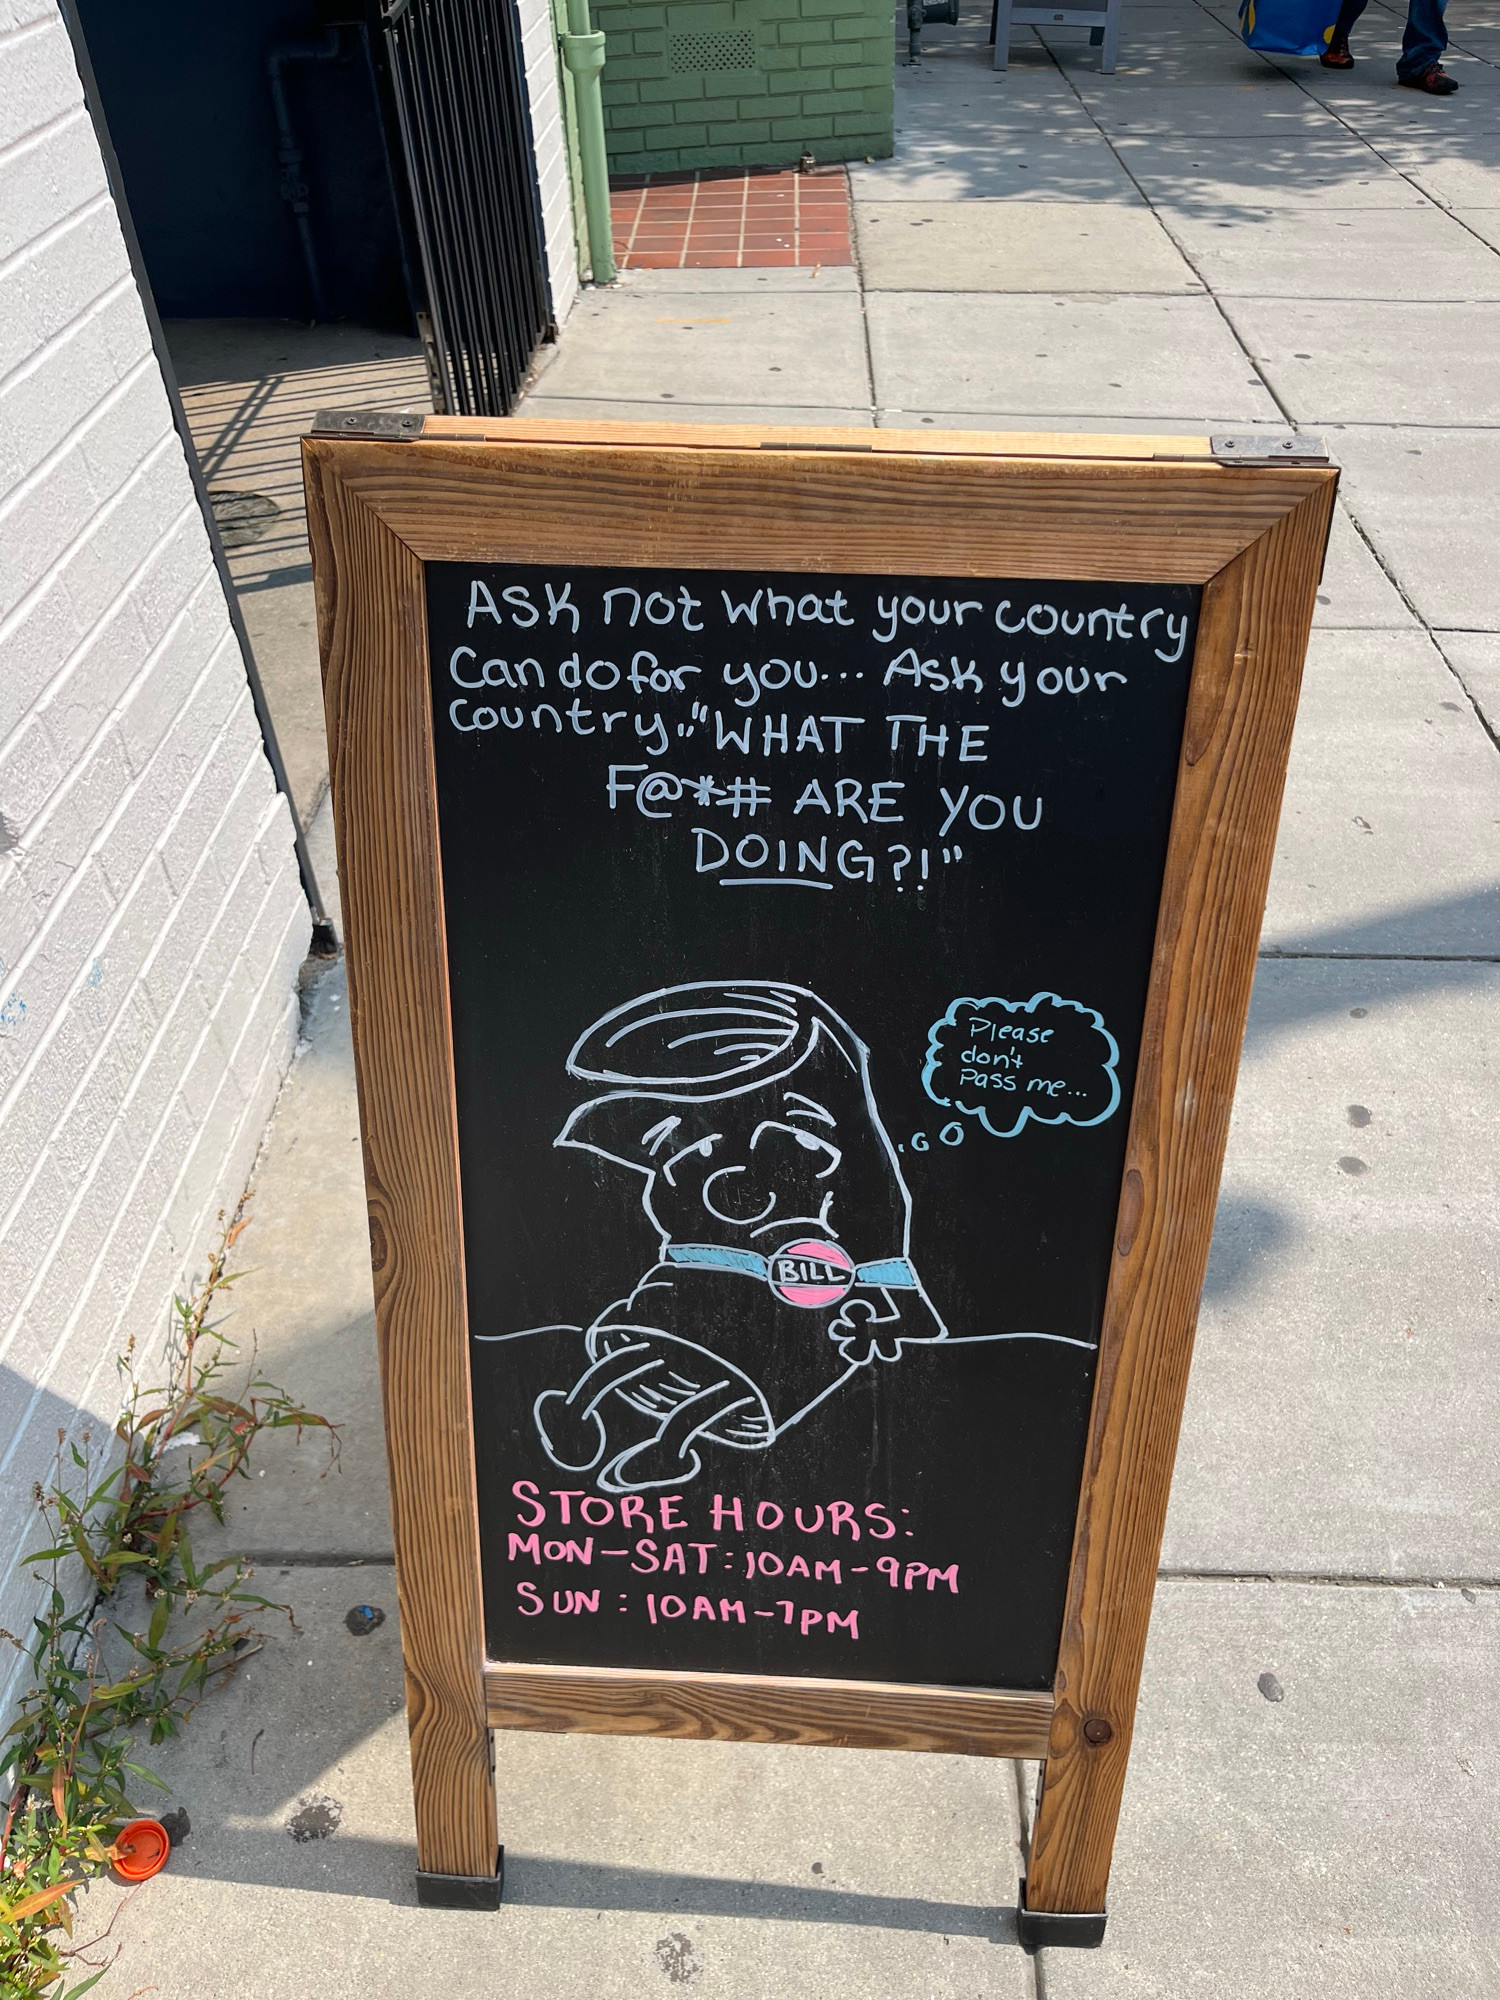 Ask not what your country
Can do for you... Ask your
Country.."WHAT THE
F@*# ARE YOU
DOING?!"
Please
don't
pass me...
BILL
STORE HOURS:
MON-SAT: 10AM-9PM
SUN: 10AM-7PM